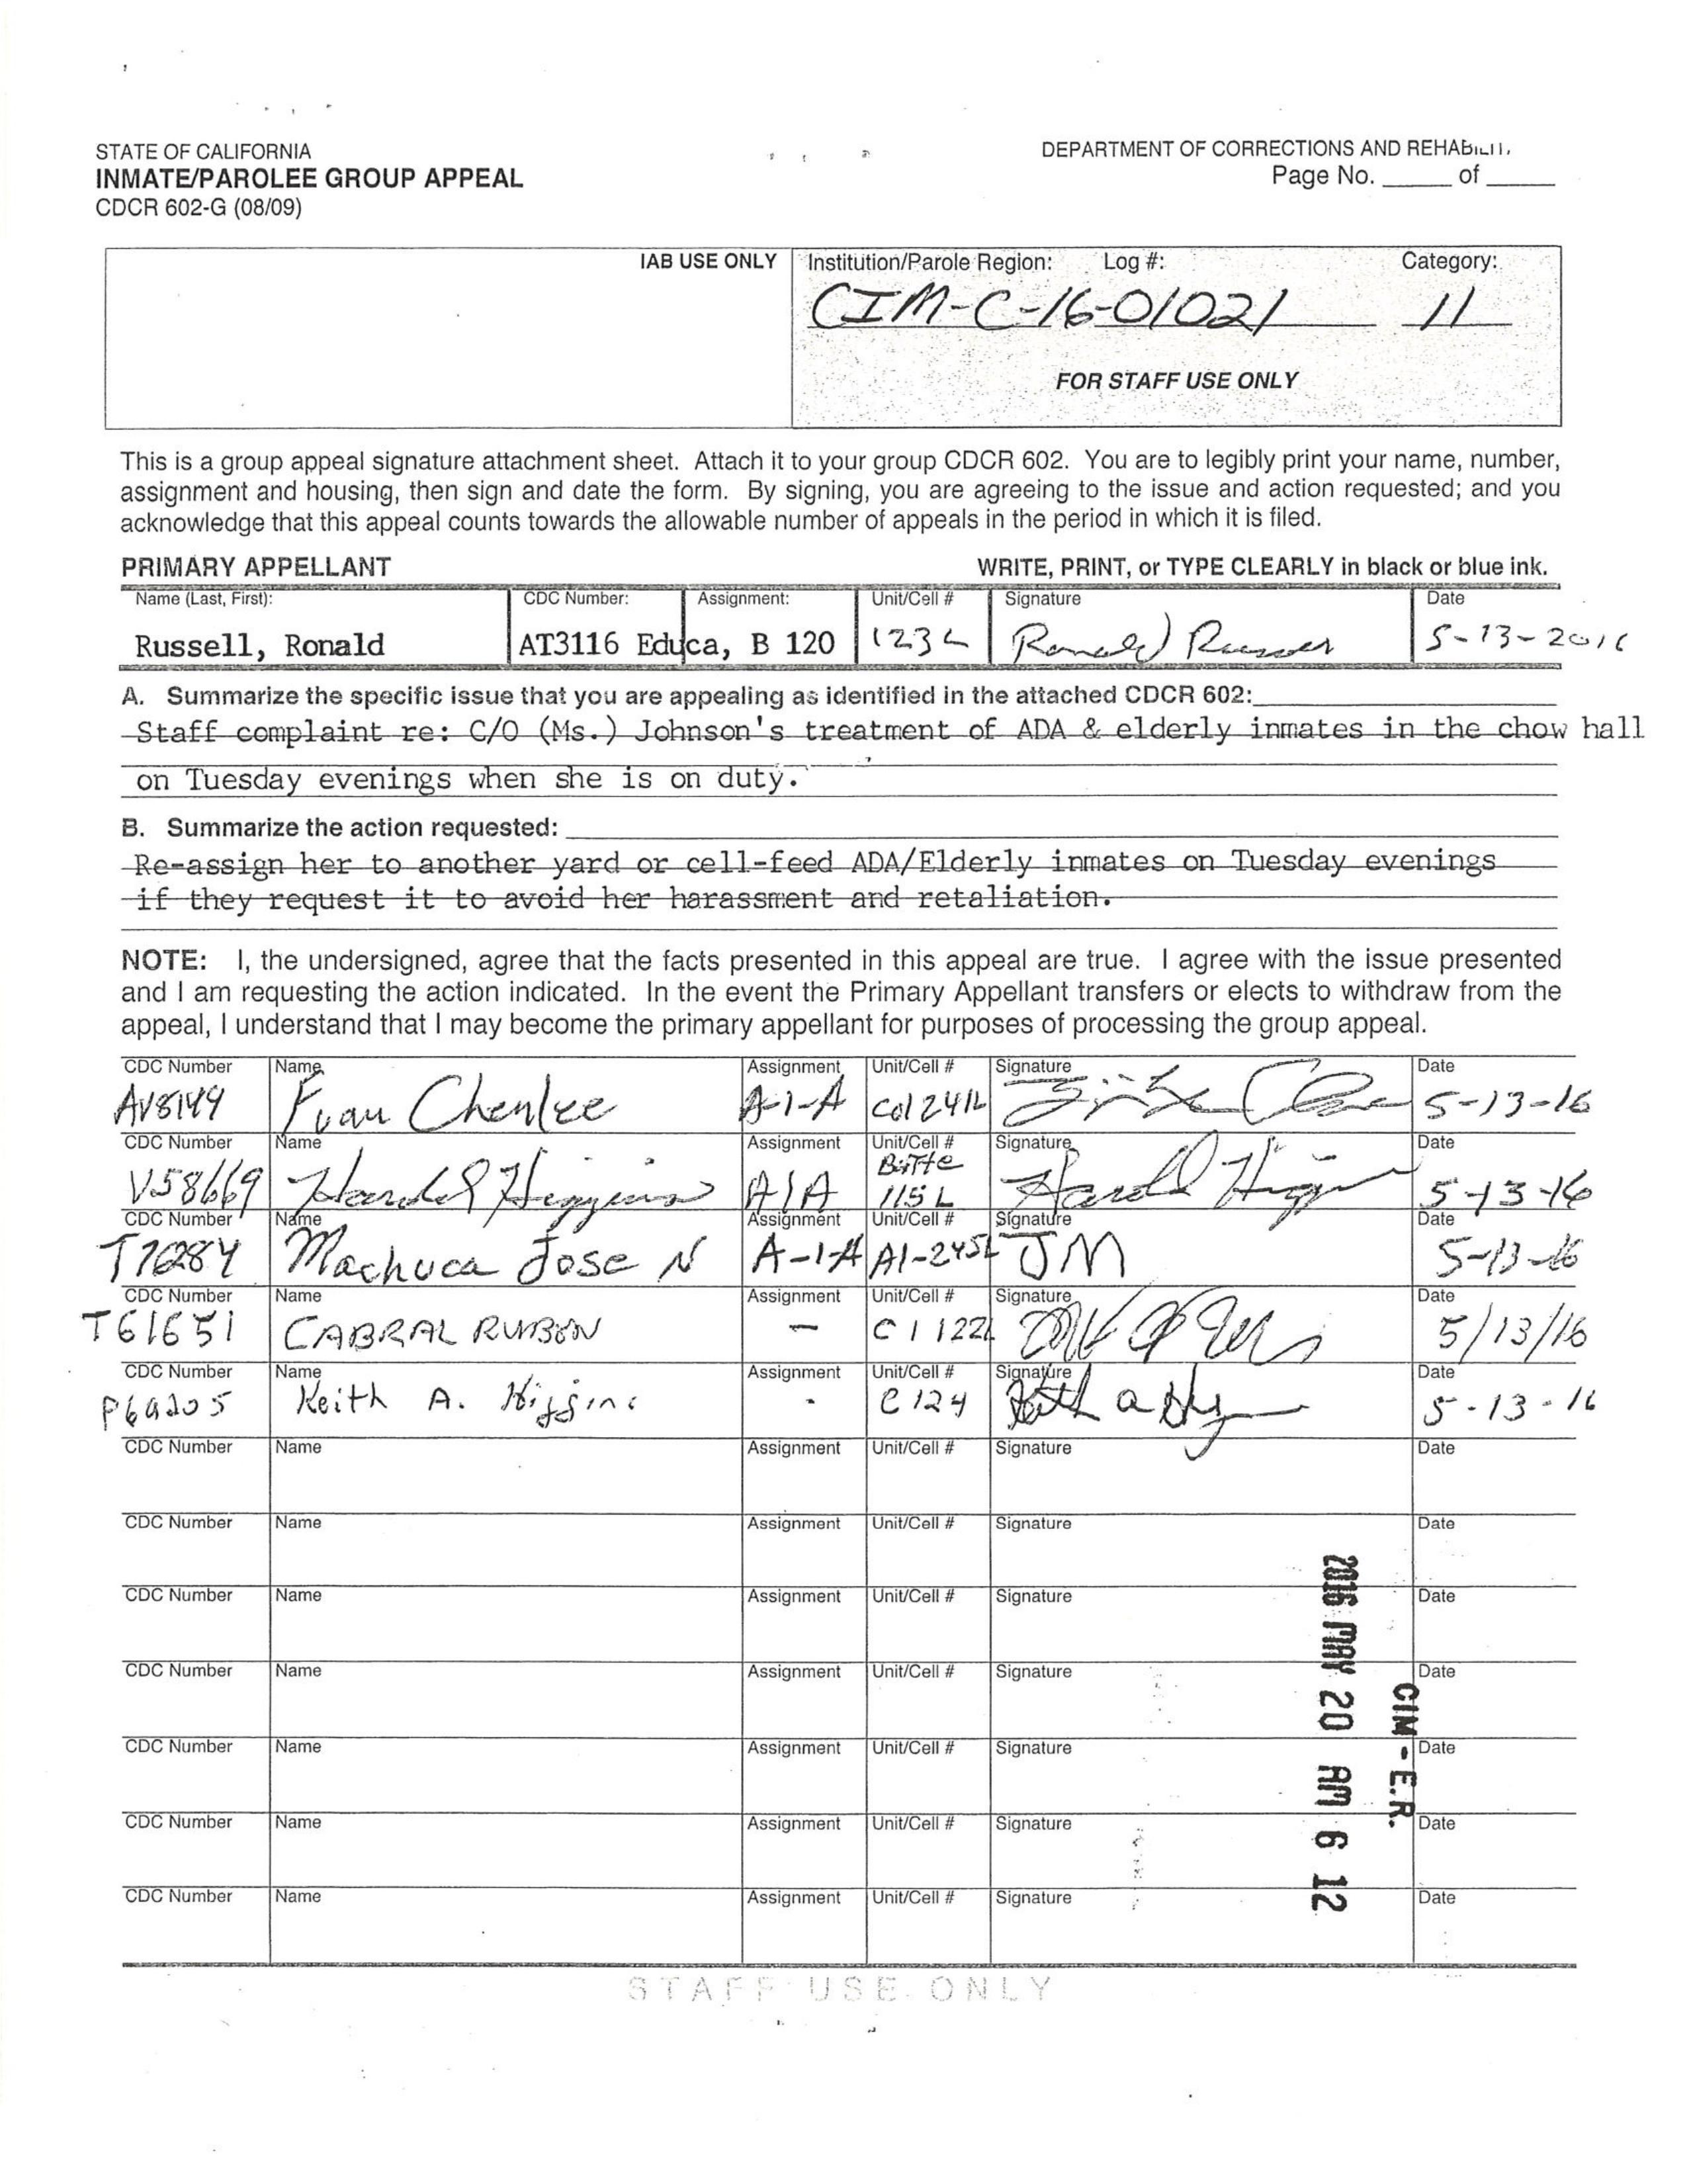 STATE OF CALIFORNIA
INMATE/PAROLEE GROUP APPEAL
CDCR 602-G (08/09)
DEPARTMENT OF CORRECTIONS AND REHABILIT.
Page No. _____ of _____
IAB USE ONLY
Institution/Parole Region: Log #: Category:
CIM-C-16-01021 11
FOR STAFF USE ONLY
This is a group appeal signature attachment sheet. Attach it to your group CDCR 602. You are to legibly print your name, number,
assignment and housing, then sign and date the form. By signing, you are agreeing to the issue and action requested; and you
acknowledge that this appeal counts towards the allowable number of appeals in the period in which it is filed.
PRIMARY APPELLANT WRITE, PRINT, or TYPE CLEARLY in black or blue ink.
Name (Last, First): CDC Number: Assignment: Unit/Cell # Signature Date
Russell, Ronald AT3116 Educa, B 120 123L Ronald Russell 5-13-2016
A. Summarize the specific issue that you are appealing as identified in the attached CDCR 602:
Staff complaint re: C/O (Ms.) Johnson's treatment of ADA & elderly inmates in the chow hall
on Tuesday evenings when she is on duty.
B. Summarize the action requested:
Re-assign her to another yard or cell-feed ADA/Elderly inmates on Tuesday evenings
if they request it to avoid her harassment and retaliation.
NOTE: I, the undersigned, agree that the facts presented in this appeal are true. I agree with the issue presented
and I am requesting the action indicated. In the event the Primary Appellant transfers or elects to withdraw from the
appeal, I understand that I may become the primary appellant for purposes of processing the group appeal.
CDC Number Name Assignment Unit/Cell # Signature Date
AV8149 Chenlee A-1-A 5-13-16
CDC Number Name Assignment Unit/Cell # Signature Date
V58669 Harold Higgins A1A 115L Harold Higgins 5-13-16
CDC Number Name Assignment Unit/Cell # Signature Date
Machuca Jose N A-1-A A1-245L JM 5-13-16
CDC Number Name Assignment Unit/Cell # Signature Date
T61651 CABRAL RUBEN - C1 122L 5/13/16
CDC Number Name Assignment Unit/Cell # Signature Date
P69205 Keith A. Higgins - C124 5-13-16
CDC Number Name Assignment Unit/Cell # Signature Date
CDC Number Name Assignment Unit/Cell # Signature Date
CDC Number Name Assignment Unit/Cell # Signature Date
CDC Number Name Assignment Unit/Cell # Signature Date
CDC Number Name Assignment Unit/Cell # Signature Date
CDC Number Name Assignment Unit/Cell # Signature Date
CDC Number Name Assignment Unit/Cell # Signature Date
CIM - E.R.
2016 MAY 20 AM 6 12
STAFF USE ONLY